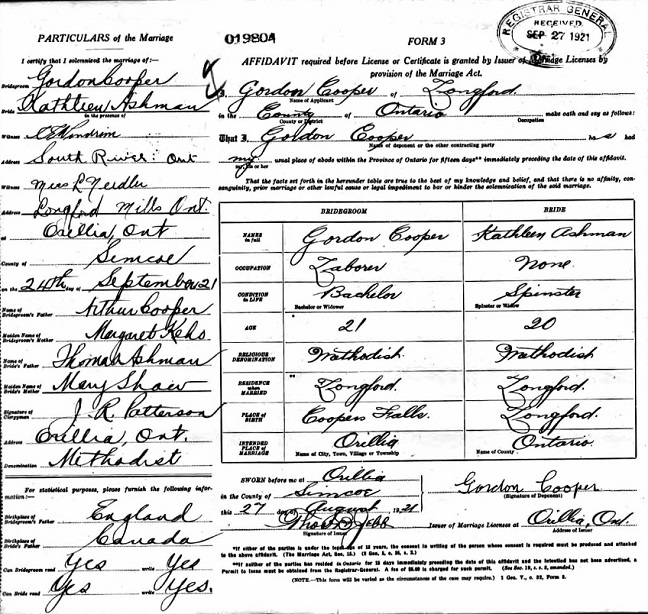 PARTICULARS of the Marriage
019804
FORM 3
REGISTRAR GENERAL
RECEIVED
SEP 27 1921
I certify that I solemnized the marriage of:—
Bridegroom Gordon Cooper
Bride Kathleen Ashman
in the presence of
Witness
Address South River: Ont
Witness Miss L Needler
Address Longford Mills Ont.
at Orillia, Ont
County of Simcoe
on the 24th day of September 21
Name of Bridegroom's Father Arthur Cooper
Maiden Name of Bridegroom's Mother Margaret
Name of Bride's Father Thomas Ashman
Maiden Name of Bride's Mother Mary Shaw
Signature of Clergyman J. R. Patterson
Address Orillia, Ont.
Denomination Methodist
For statistical purposes, please furnish the following information:—
Birthplace of Bridegroom's Father England
Birthplace of Bride's Father Canada
Can Bridegroom read Yes write Yes
Can Bride read Yes write Yes.
AFFIDAVIT required before License or Certificate is granted by Issuer of Marriage Licenses by
provision of the Marriage Act.
I, Gordon Cooper of Longford.
Name of Applicant
in the County of Ontario make oath and say as follows:
County or District Occupation
That I, Gordon Cooper has had
Name of deponent or the other contracting party
my usual place of abode within the Province of Ontario for fifteen days** immediately preceding the date of this affidavit.
my, his or her
That the facts set forth in the hereunder table are true to the best of my knowledge and belief, and that there is no affinity, consanguinity, prior marriage or other lawful cause or legal impediment to bar or hinder the solemnization of the said marriage.
BRIDEGROOM BRIDE
NAMES in full Gordon Cooper Kathleen Ashman
OCCUPATION Laborer None
CONDITION in LIFE Bachelor Spinster
Bachelor or Widower Spinster or Widow
AGE 21 20
RELIGIOUS DENOMINATION Methodish Methodish
RESIDENCE when MARRIED Longford. Longford.
PLACE OF BIRTH Coopers Falls. Longford.
INTENDED PLACE OF MARRIAGE Orillia Ontario.
Name of City, Town, Village or Township Name of County
SWORN before me at Orillia
in the County of Simcoe
this 27 day of August 1921
Signature of Issuer
Gordon Cooper
(Signature of Deponent)
Issuer of Marriage Licenses at Orillia, Ont.
Address of Issuer
*If either of the parties is under the legal age of 18 years, the consent in writing of the person whose consent is required must be produced and attached to the above affidavit. (The Marriage Act, Sec. 15.)
**If neither of the parties has resided in Ontario for 15 days immediately preceding the date of this affidavit and the intention has not been advertised, a Permit to Issue must be obtained from the Registrar-General. A fee of $5.00 is charged for such permit.
(NOTE.—This form will be varied as the circumstances of the case may require.)